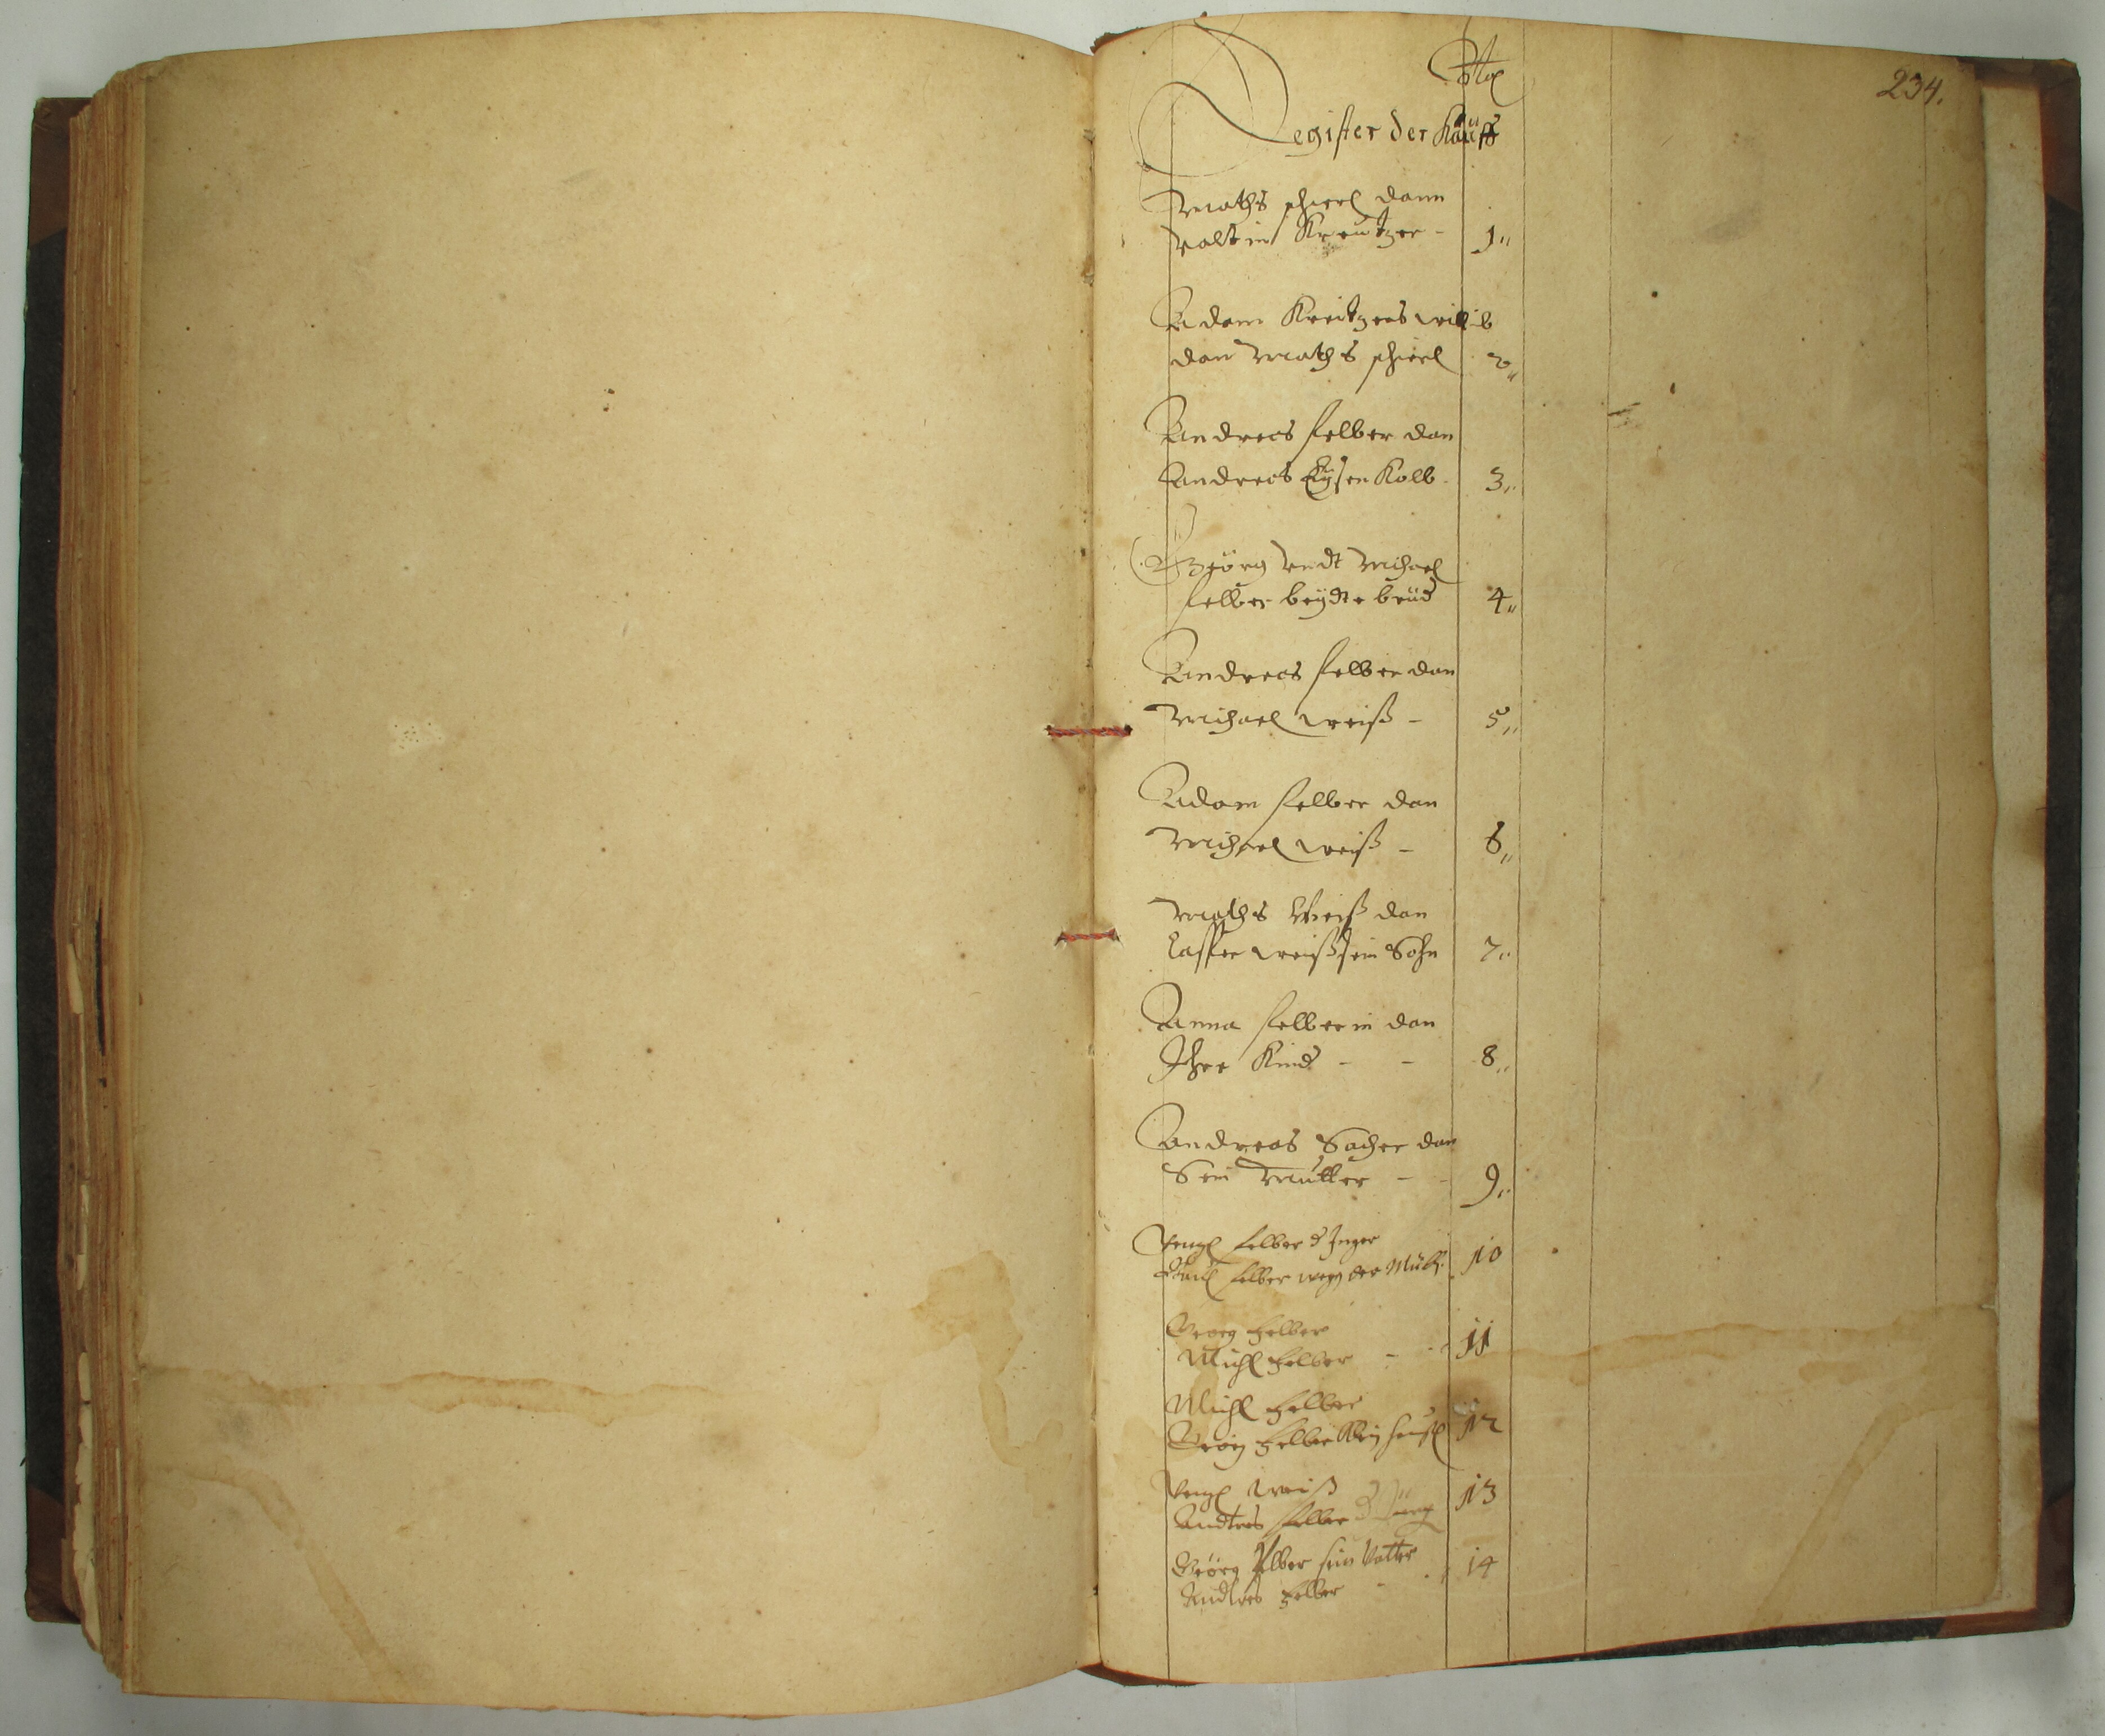 234.
Register der Käuff
Mathß schierl dann
Valtin Kreutzer - 1"
Adam Kreitzers weib
dan Mathß schierl 2"
Andreas felber dan
Andreas Eysen Kolb - 3"
Geörg Vndt Michael
felber beÿdte brüd 4"
Andreas felber dan
Michael weiß - 5"
Adam felber dan
Michael weiß - 6"
Mathß Weiß dan
Casper weiß sein Sohn 7"
Anna felberin dan
Ihre Kind - - 8"
Andreas Sacher dan
Sein Mutter - - 9"
felber d Inger
felber weg der Mühl 10
Georg felber
Michl felber - - 11
Michl felber
Geörg felber 12
weiß
Andres felber 13
Geörg felber sein Vatter
Andres felber - 14